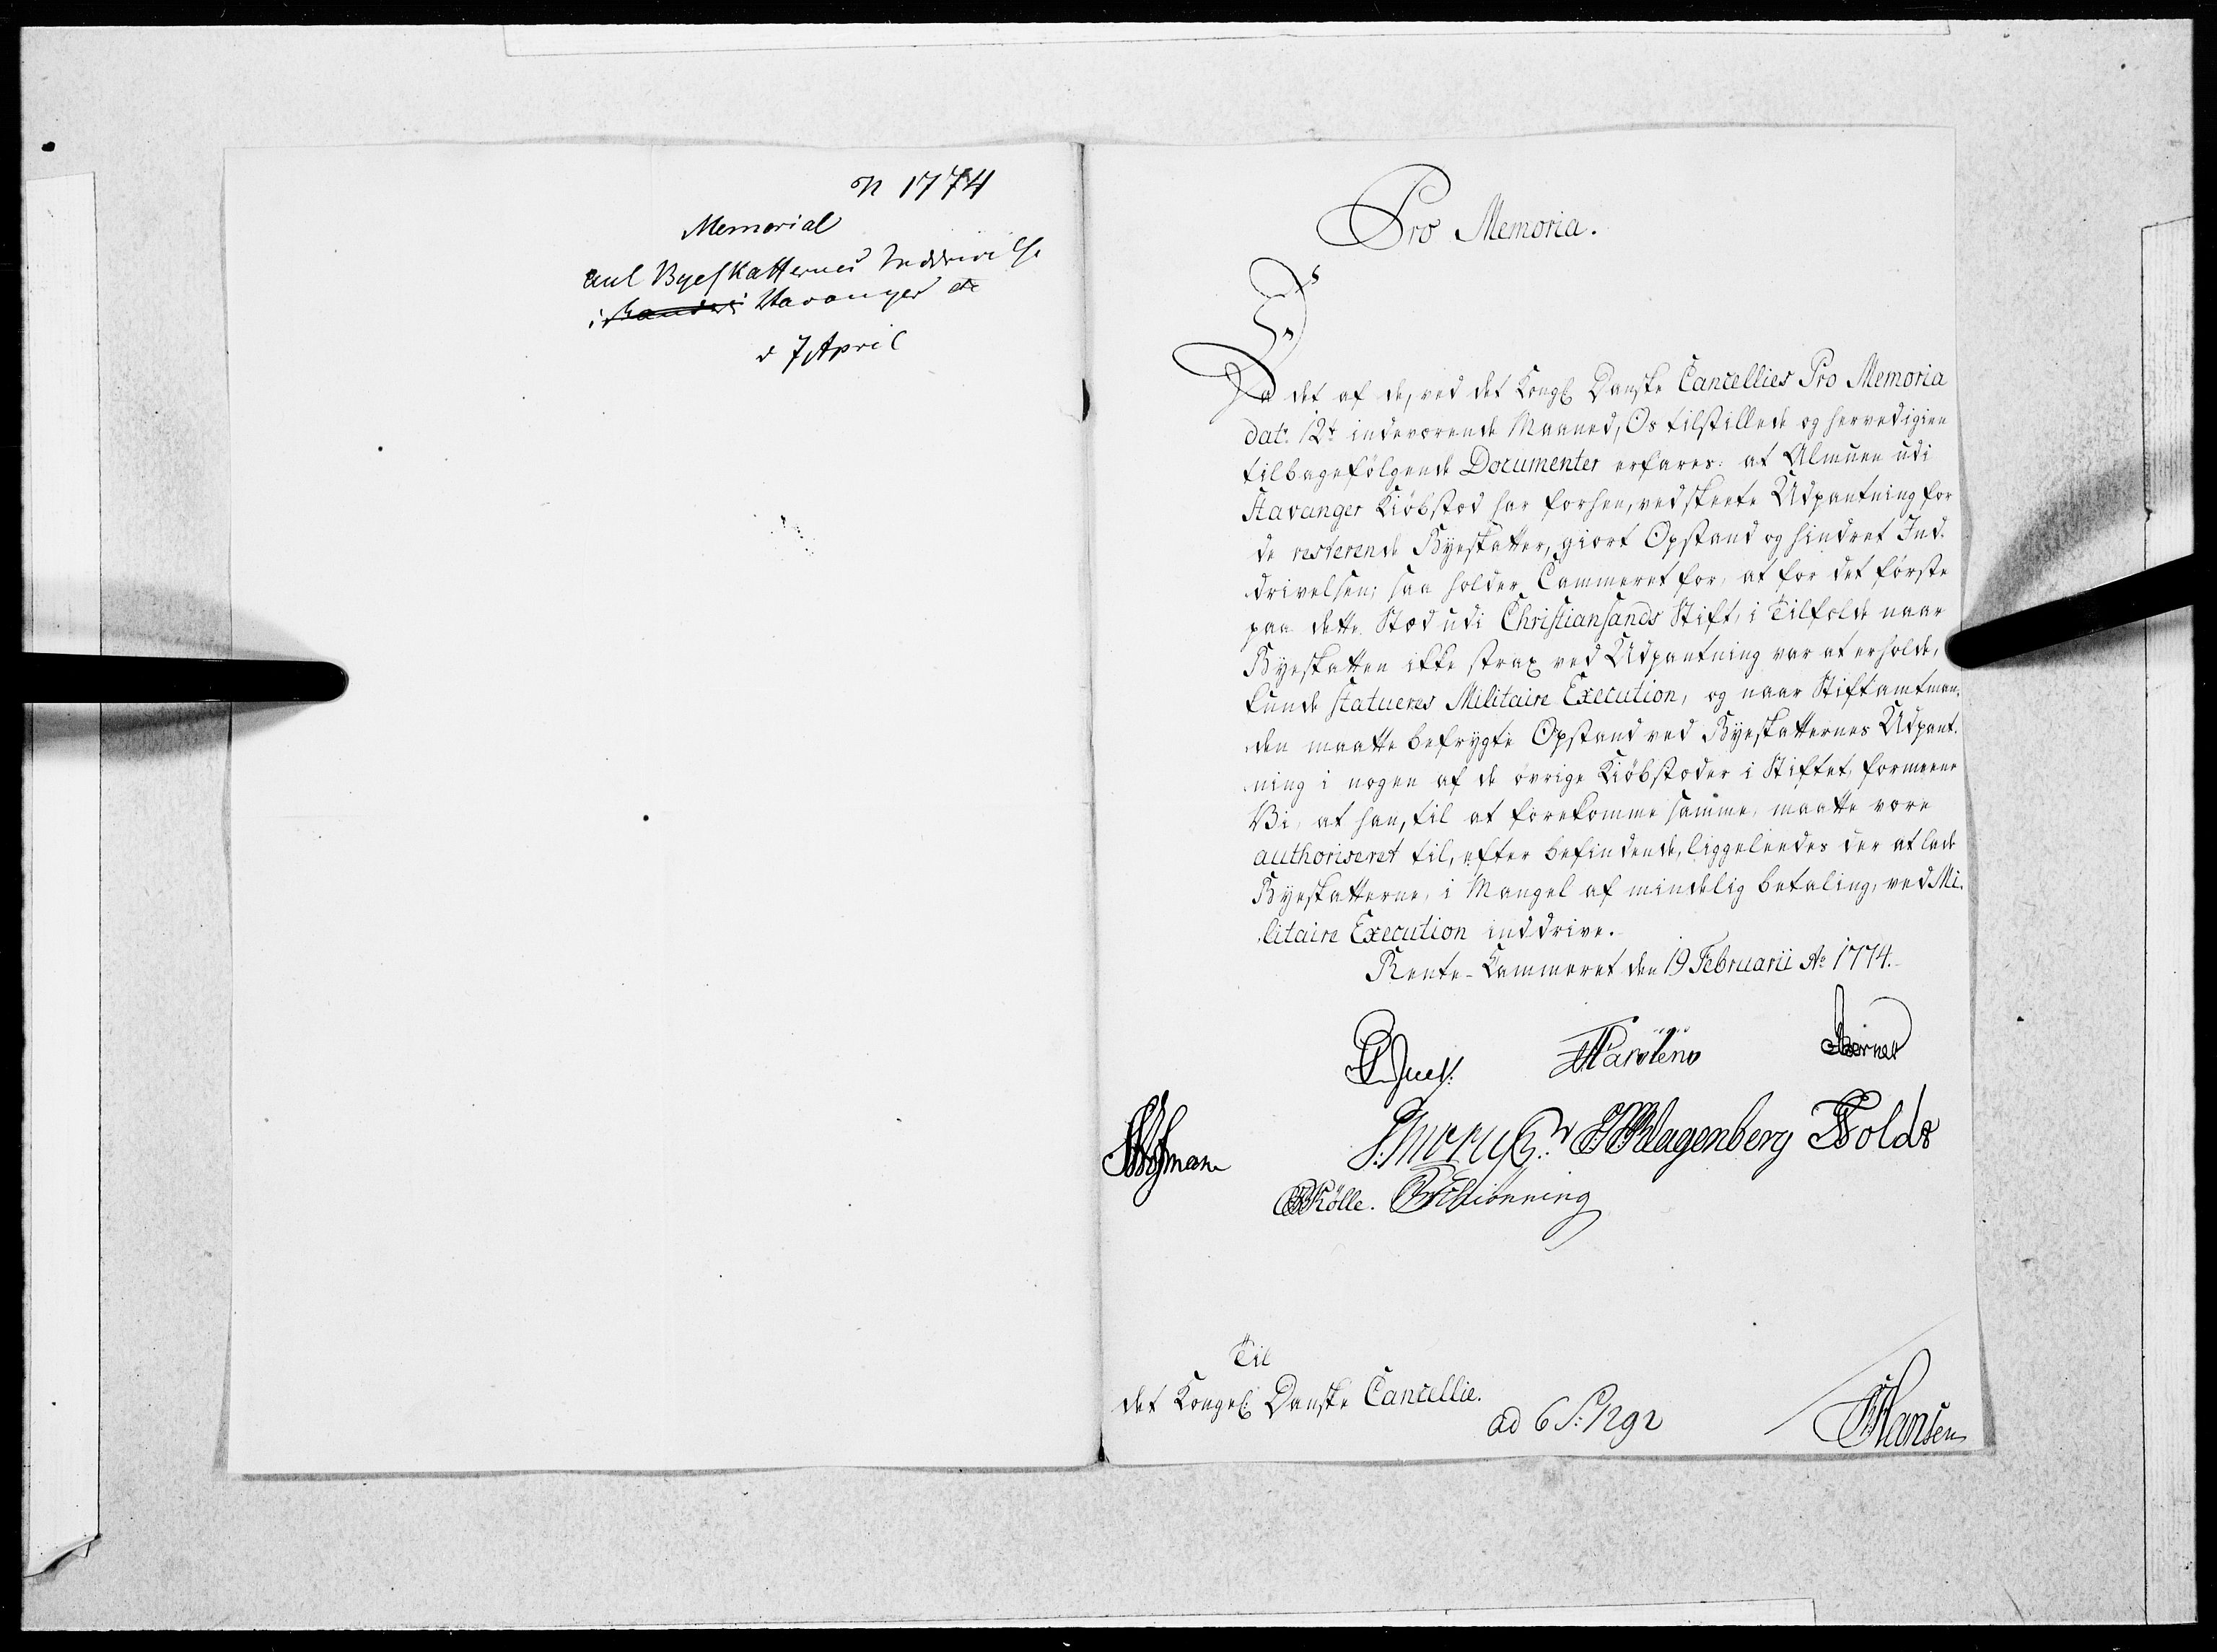 1774
Memorial
anl Byeskatternes Inddrivelse
i Stavanger etc
d 7 April
Pro Memoria.
Da det af de, ved det Kongl. Danske Cancellies Pro Memoria
dat. 12t. indeværende Maaned, Os tilstillede og hervedigien
tilbagefölgende Documenter erfares: at Almuen udi
Stavanger Kiöbstæd har forhen, ved skeete Udpantning for
de resterende Byeskatter, giort Opstand og hindret Ind-
drivelsen; saa holder Cammeret for, at for det förste
paa dette Stæd udi Christiansands Stift, i Tilfælde naar
Byeskatten ikke strax ved Udpantning var at erholde,
kunde statueres Militaire Execution, og naar Stiftamtman-
den maatte befrygte Opstand ved Byeskatternes Udpant-
ning i nogen af de övrige Kiöbstæder i Stiftet, formeener
Vi, at han, til at forekomme samme, maatte være
authoriseret til, efter befindende, liggeleedes der at lade
Byeskatterne, i Mangel af mindelig betaling, ved Mi-
litaire Execution inddrive.
Rente-Kammeret den 19 Februarii Ao 1774.
Juel. Martens
Hofman Klagenberg Holdt
Kölle. Schiönning
Til
det Kongel. Danske Cancellie.
ad 6 S: 1292
Hansen